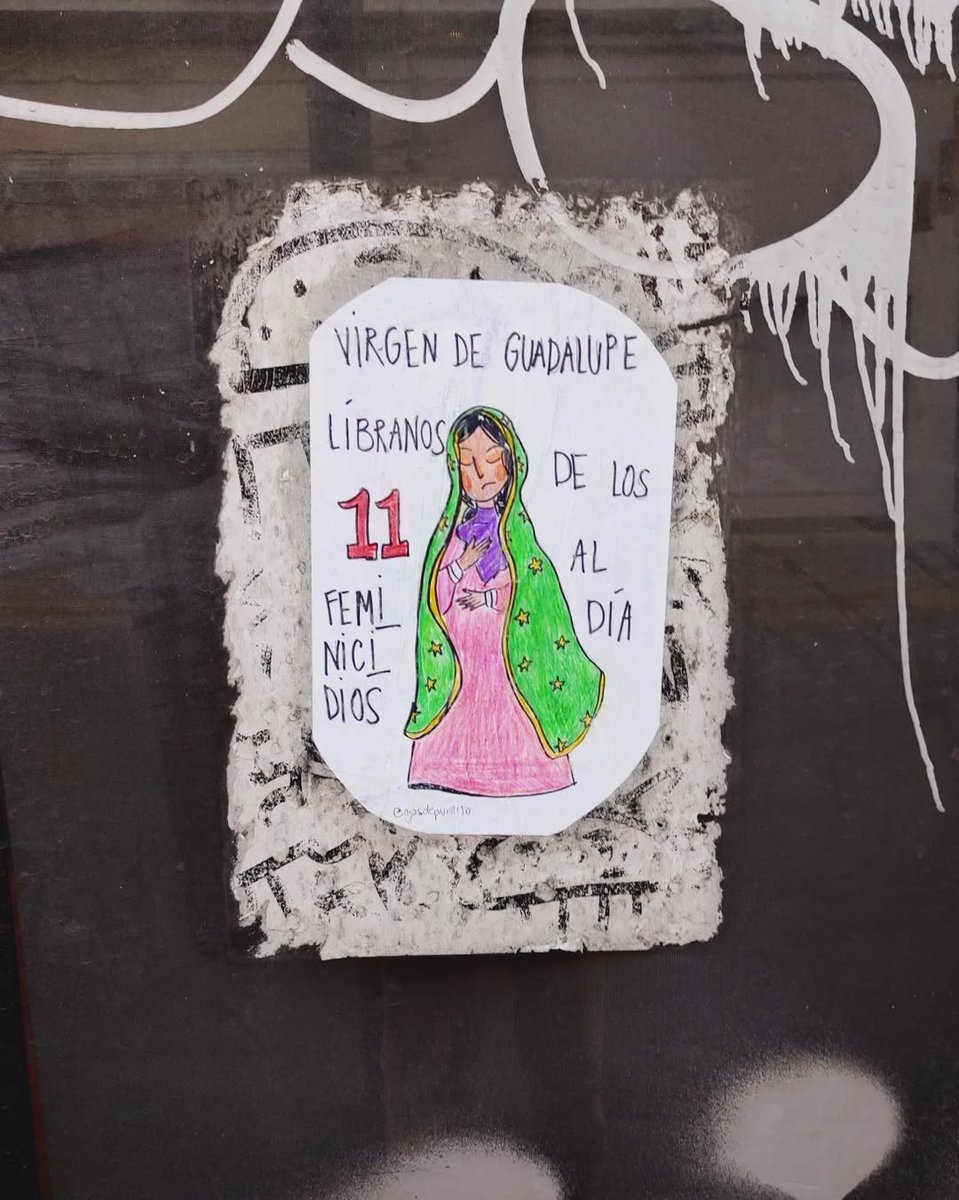 VIRGEN DE GUADALUPE
LÍBRANOS
DE LOS
11
FEMI
NICI
DIOS
AL
DÍA